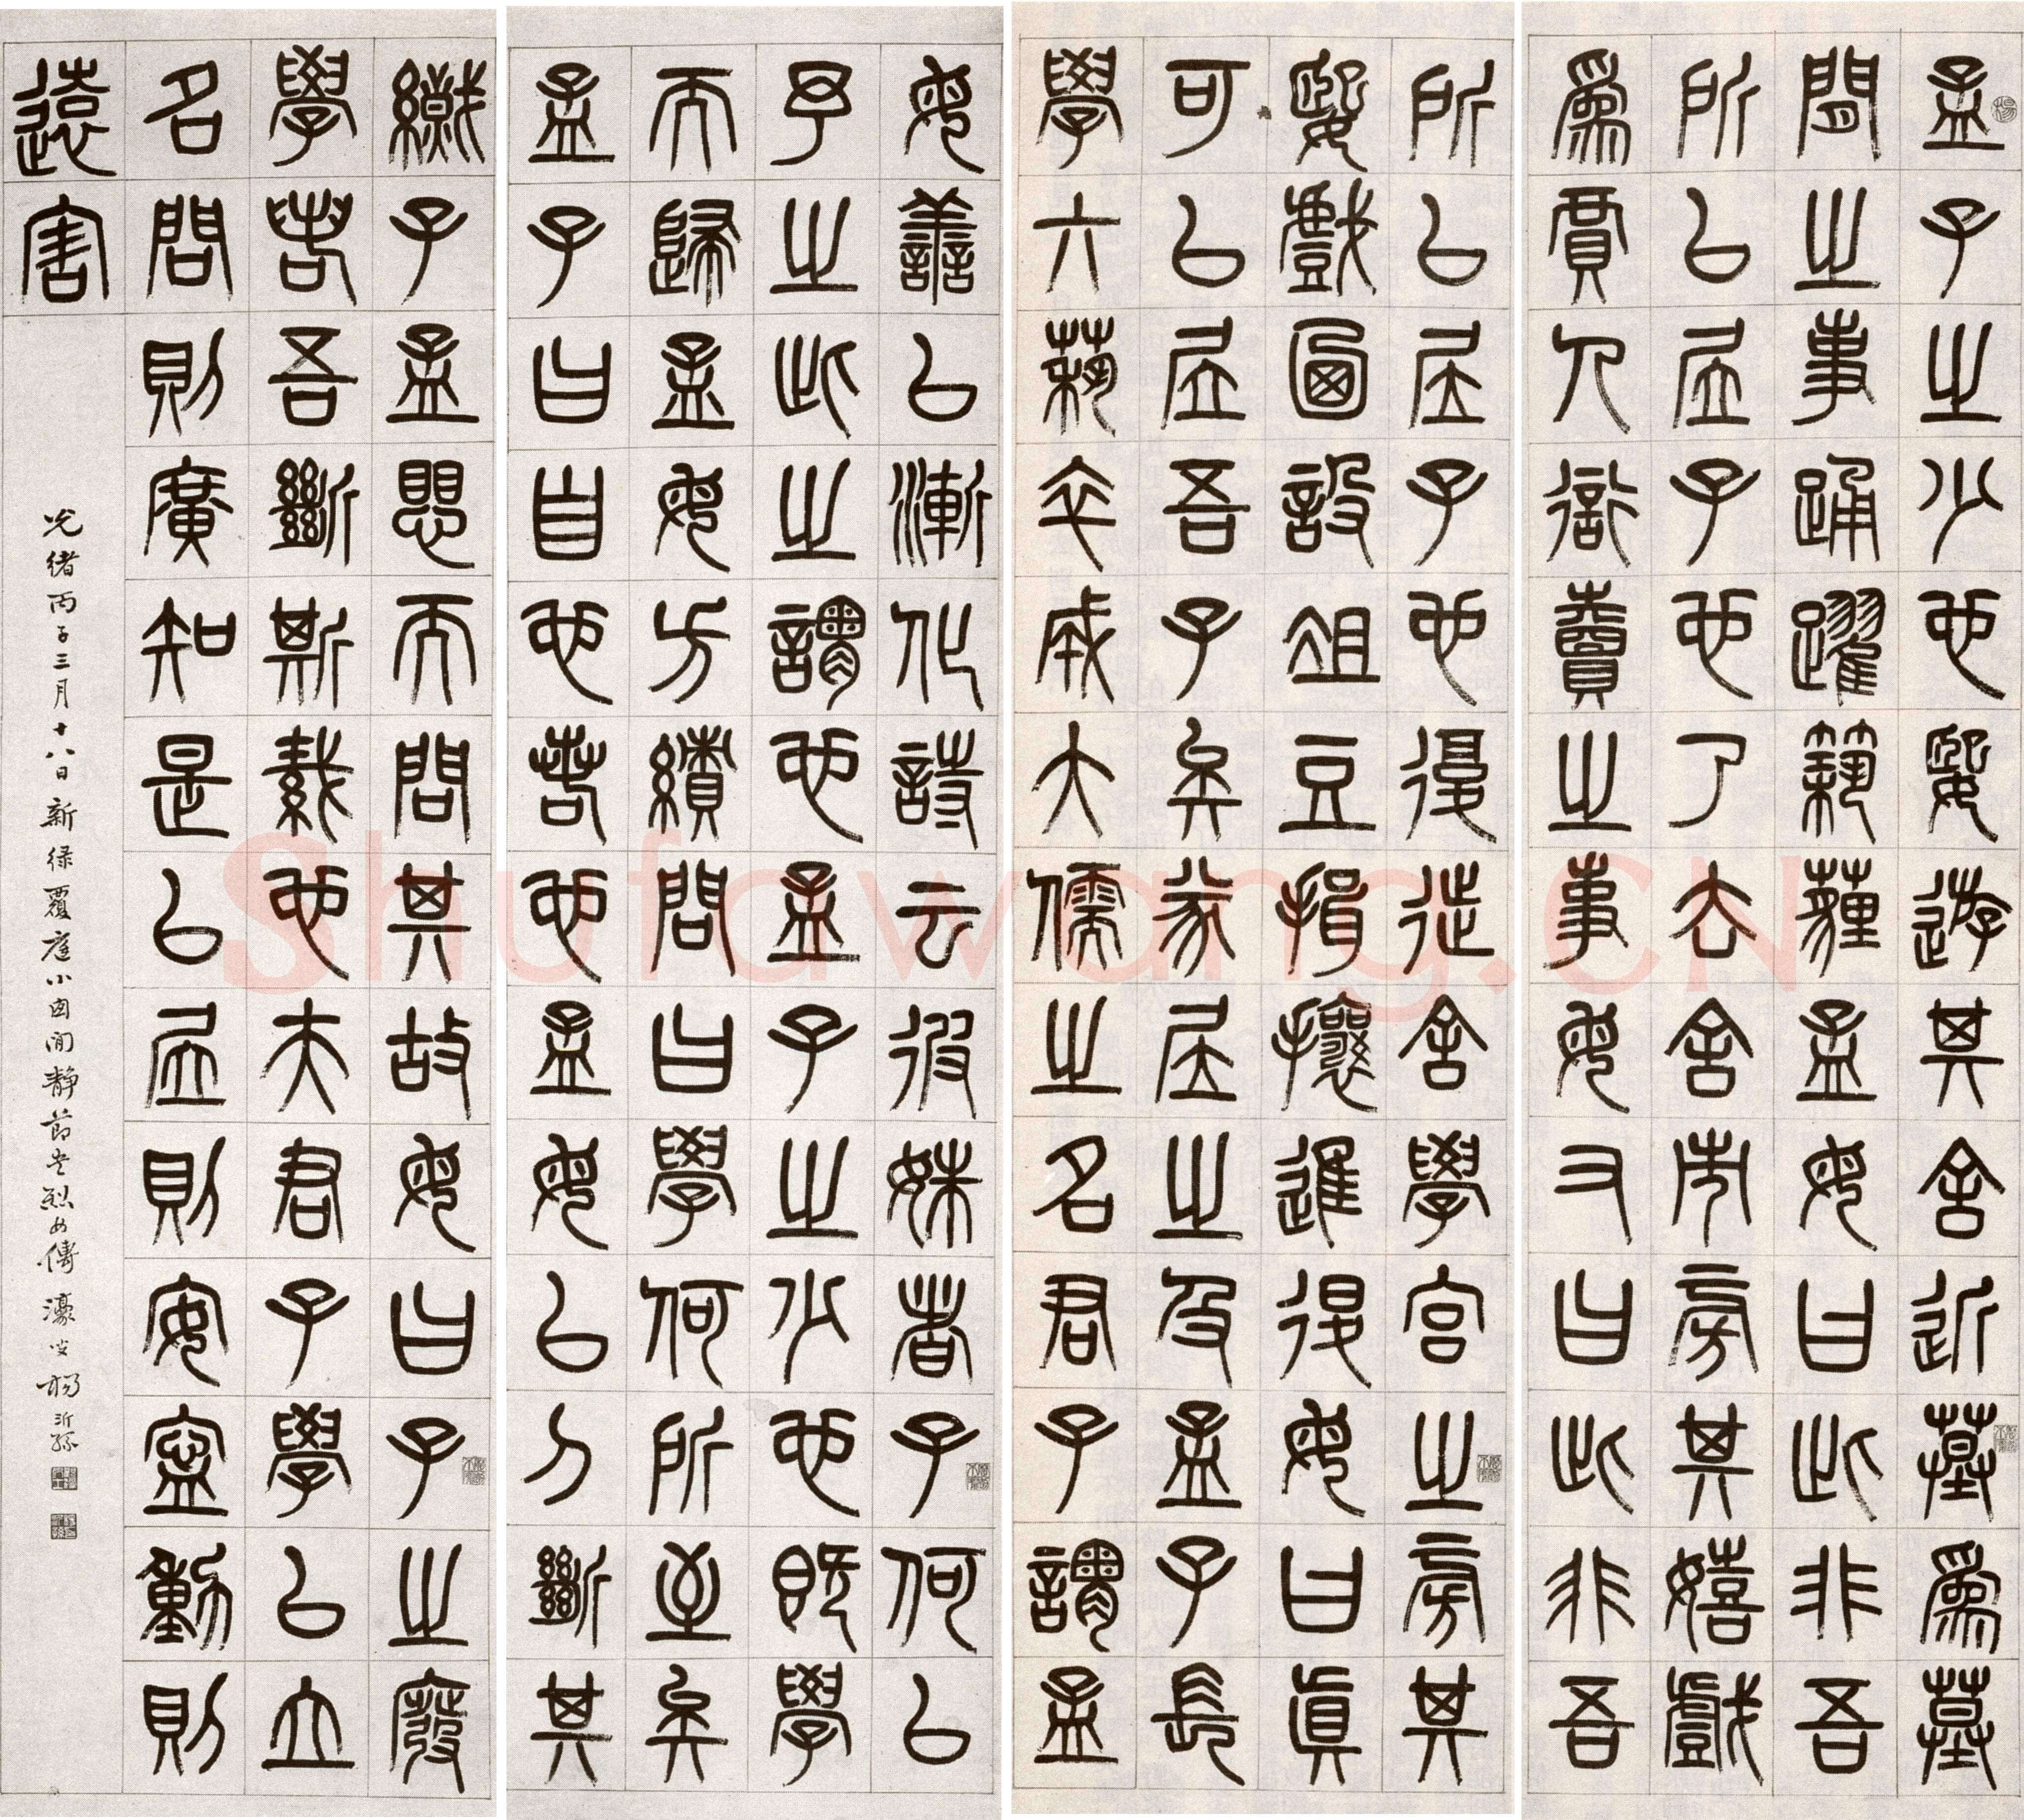 孟子之少也媐遊其舍近墓爲墓
閒之事踊躍築薶孟母曰此非吾
所以居子也乃去舍市旁其嬉戲
爲賈人衒賣之事母又曰此非吾
所以居子也復徙舍學宮之旁其
媐戲圖設俎豆揖攘進退母曰真
可以居吾子矣遂居之及孟子長
學六藝卒成大儒之名君子謂孟
母善以漸化詩云彼姝者子何以
予之此之謂也孟子之少也既學
而歸孟母方績問曰學何所至矣
孟子曰自也若也孟母以刀斷其
織子孟愳而問其故母曰子之廢
學若吾斷斯織也夫君子學以立
名問則廣知是以居則安寧動則
遠害
光緒丙子三月十八日新緑覆庭小窗閒靜節書列女傳 濠叟楊沂孫
Shufawang.CN